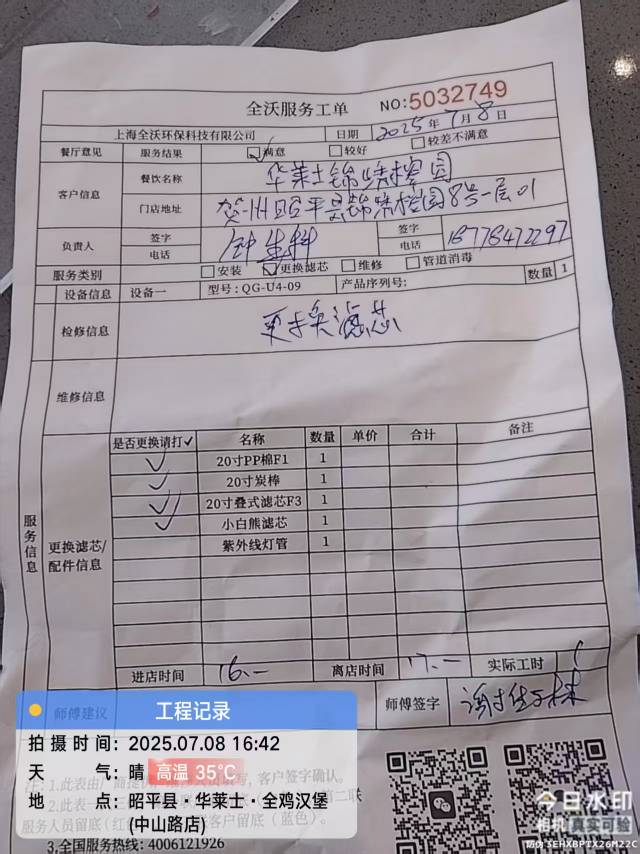 全沃服务工单 NO:5032749
上海全沃环保科技有限公司 日期 2025年7月8日
餐厅意见 服务结果 满意 较好 较差不满意
客户信息 餐饮名称 华莱士锦绣橙园
门店地址 贺州昭平县锦绣橙园8号一层01
负责人 签字 电话 签字 电话 18778472297
服务类别 安装 更换滤芯 维修 管道消毒 数量 1
设备信息 设备一 型号:QG-U4-09 产品序列号:
检修信息 更换滤芯
维修信息
服务信息
更换滤芯/配件信息
是否更换请打✓ 名称 数量 单价 合计 备注
✓ 20寸PP棉F1 1
✓ 20寸炭棒 1
✓ 20寸叠式滤芯F3 1
✓ 小白熊滤芯 1
紫外线灯管 1
进店时间 16.一 离店时间 17.一 实际工时
师傅建议 师傅签字
工程记录
拍摄时间：2025.07.08 16:42
天气：晴 高温 35℃
地点：昭平县·华莱士·全鸡汉堡
(中山路店)
3.全国服务热线: 4006121926
今日水印
相机 真实可验
防伪 SEHXBPTX26M22C